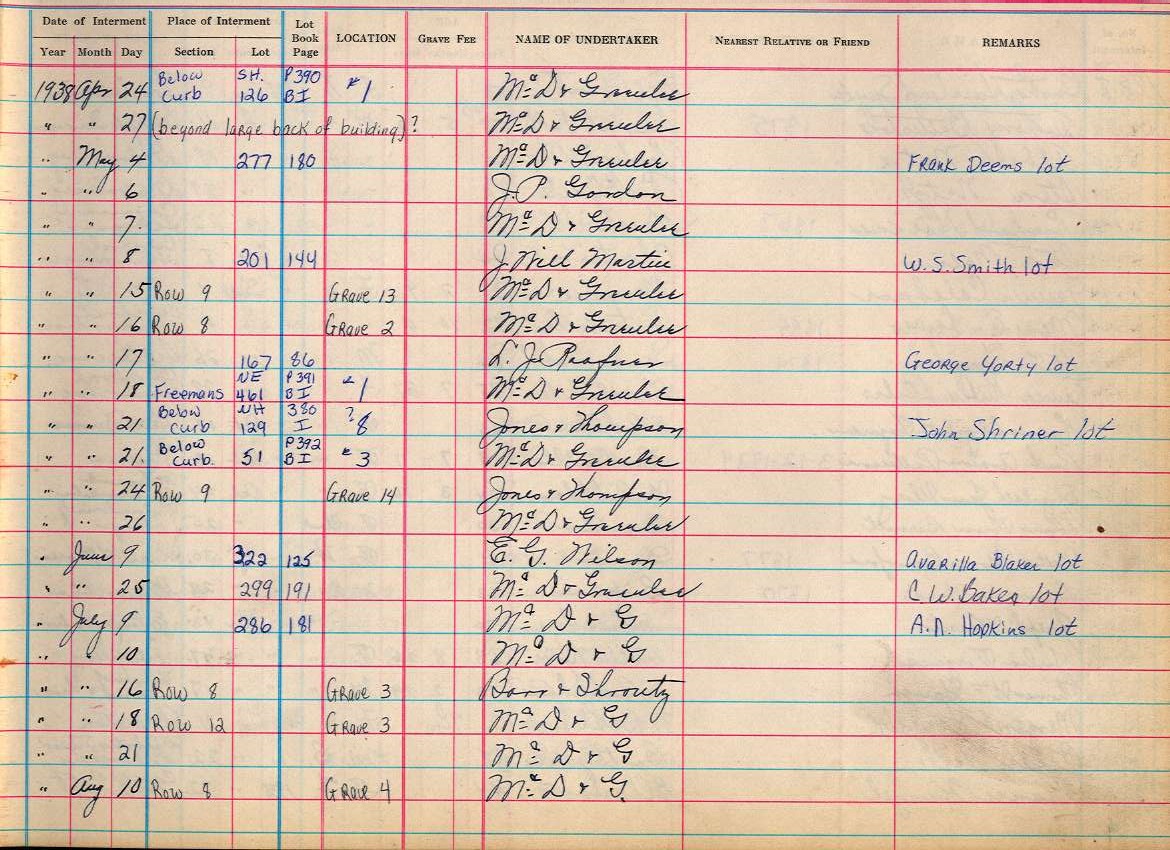 Date of Interment Place of Interment Lot Book Page LOCATION GRAVE FEE NAME OF UNDERTAKER NEAREST RELATIVE OR FRIEND REMARKS
Year Month Day Section Lot
1938 Apr 24 Below Curb SH. 126 P390 BI #1 McD & Greenlee
" " 27 (beyond large back of building)? McD & Greenlee
" May 4 277 180 McD & Greenlee Frank Deems lot
" " 6 J.P. Gordon
" " 7. McD & Greenlee
" " 8 201 144 J Will Martin W.S. Smith lot
" " 15 Row 9 Grave 13 McD & Greenlee
" " 16 Row 8 Grave 2 McD & Greenlee
" " 17 167 86 L. J. George Yorty lot
" " 18 Freemans NE 461 P391 BI #1 McD & Greenlee
" " 21. Below Curb NH 129 380 I ?8 Jones & Thompson John Shriner lot
" " 21. Below Curb. 51 P392 BI #3 McD & Greenlee
" " 24 Row 9 Grave 14 Jones & Thompson
" " 26 McD & Greenlee
" June 9 322 125 E. G. Wilson Avarilla Blaker lot
" " 25 299 191 McD & Greenlee C.W. Baker lot
" July 9 286 181 Mc D & G A.N. Hopkins lot
" " 10 Mc D & G
" " 16 Row 8 Grave 3 Barr & Shroutz
" " 18 Row 12 Grave 3 Mc D & G
" " 21 Mc D & G
" Aug 10 Row 8 Grave 4 Mc D & G.